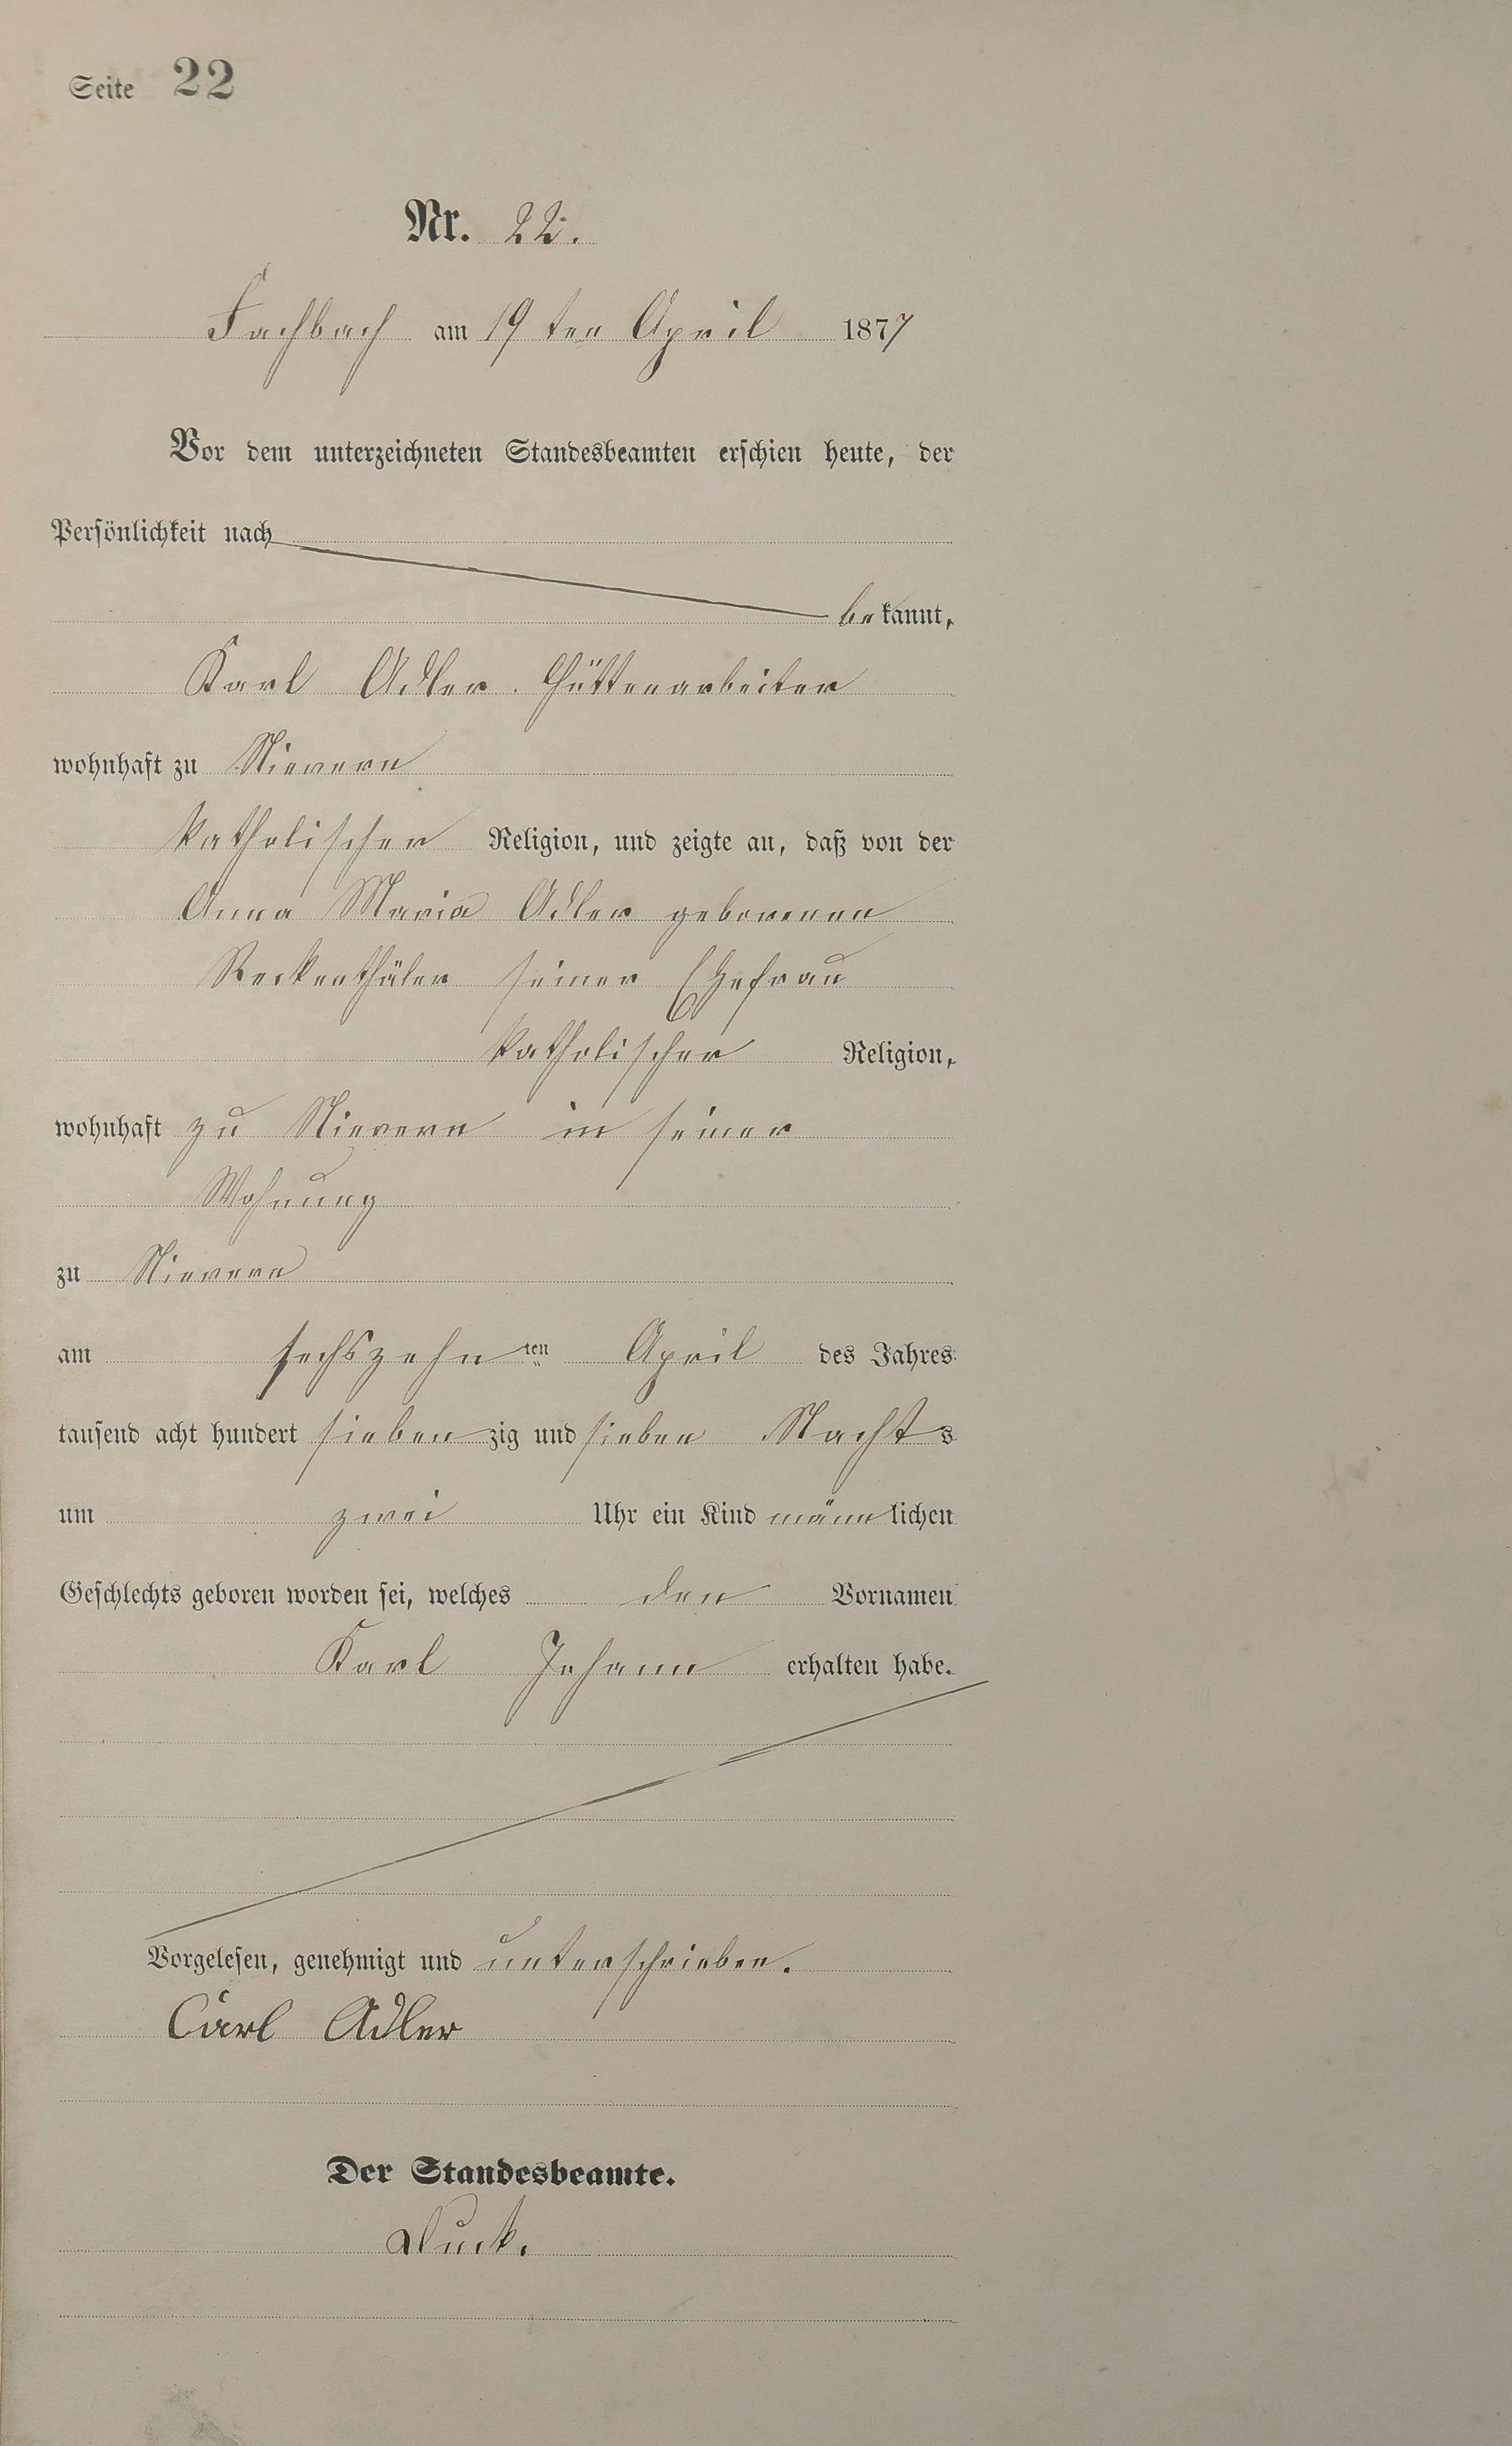 Seite 22
Nr. 22.
Fachbach am 19ten April 1877
Vor dem unterzeichneten Standesbeamten erschien heute, der
Persönlichkeit nach
bekannt,
Karl Adler Hüttenarbeiter
wohnhaft zu Nievern
katholischer Religion, und zeigte an, daß von der
Anna Maria Adler geborenen
Reckenthäler seiner Ehefrau
katholischer Religion,
wohnhaft zu Nievern in seiner
Wohnung
zu Nievern
am sechszehnten April des Jahres
tausend acht hundert siebenzig und sieben Nachts
um zwei Uhr ein Kind männlichen
Geschlechts geboren worden sei, welches den Vornamen
Karl Johann erhalten habe.
Vorgelesen, genehmigt und unterschrieben.
Carl Adler
Der Standesbeamte.